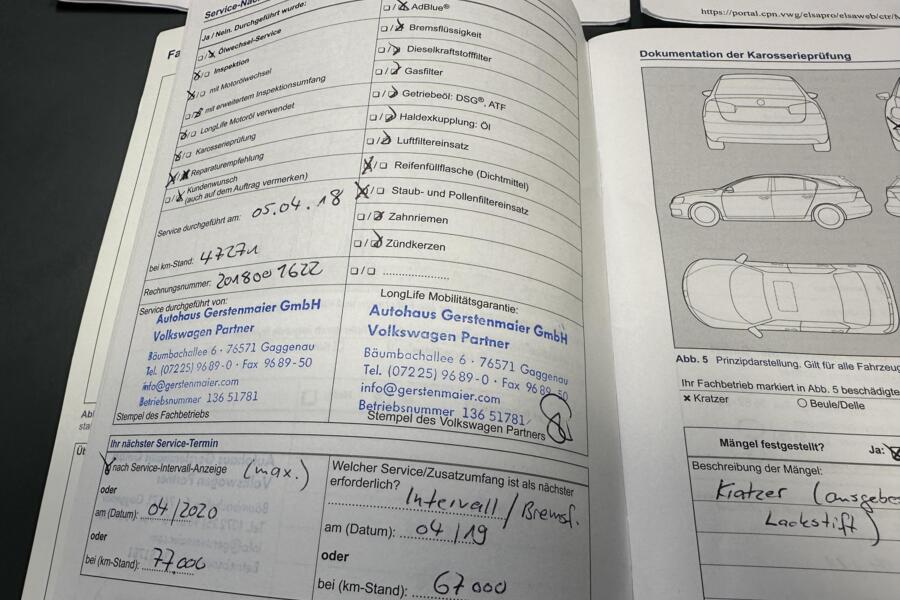 Service-Nac
Ja / Nein. Durchgeführt wurde:
❑/❑ Ölwechsel-Service
❑/❑ Inspektion
❑/❑ mit Motorölwechsel
❑/❑ mit erweitertem Inspektionsumfang
❑/❑ LongLife Motoröl verwendet
❑/❑ Karosserieprüfung
❑/❑ Reparaturempfehlung
❑/❑ Kundenwunsch
(auch auf dem Auftrag vermerken)
Service durchgeführt am: 05.04.18
bei km-Stand: 47271
Rechnungsnummer: 2018001622
❑/❑ AdBlue®
❑/❑ Bremsflüssigkeit
❑/❑ Dieselkraftstofffilter
❑/❑ Gasfilter
❑/❑ Getriebeöl: DSG®, ATF
❑/❑ Haldexkupplung: Öl
❑/❑ Luftfiltereinsatz
❑/❑ Reifenfüllflasche (Dichtmittel)
❑/❑ Staub- und Pollenfiltereinsatz
❑/❑ Zahnriemen
❑/❑ Zündkerzen
❑/❑ ....................
Service durchgeführt von:
Autohaus Gerstenmaier GmbH
Volkswagen Partner
Bäumbachallee 6 · 76571 Gaggenau
Tel. (07225) 96 89-0 · Fax 96 89-50
info@gerstenmaier.com
Betriebsnummer 136 51781
Stempel des Fachbetriebs
LongLife Mobilitätsgarantie:
Autohaus Gerstenmaier GmbH
Volkswagen Partner
Bäumbachallee 6 · 76571 Gaggenau
Tel. (07225) 96 89-0 · Fax 96 89-50
info@gerstenmaier.com
Betriebsnummer 136 51781
Stempel des Volkswagen Partners
Ihr nächster Service-Termin
nach Service-Intervall-Anzeige (max.)
oder
am (Datum): 04/2020
oder
bei (km-Stand): 77.000
Welcher Service/Zusatzumfang ist als nächster
erforderlich?
Intervall / Bremsf.
am (Datum): 04/19
oder
bei (km-Stand): 67000
https://portal.cpn.vwg/elsapro/elsaweb/ctr/
Dokumentation der Karosserieprüfung
Abb. 5 Prinzipdarstellung. Gilt für alle Fahrzeug
Ihr Fachbetrieb markiert in Abb. 5 beschädigte
× Kratzer
○ Beule/Delle
Mängel festgestellt?
Ja:
Beschreibung der Mängel:
Kratzer (ausgebe
Lackstift)